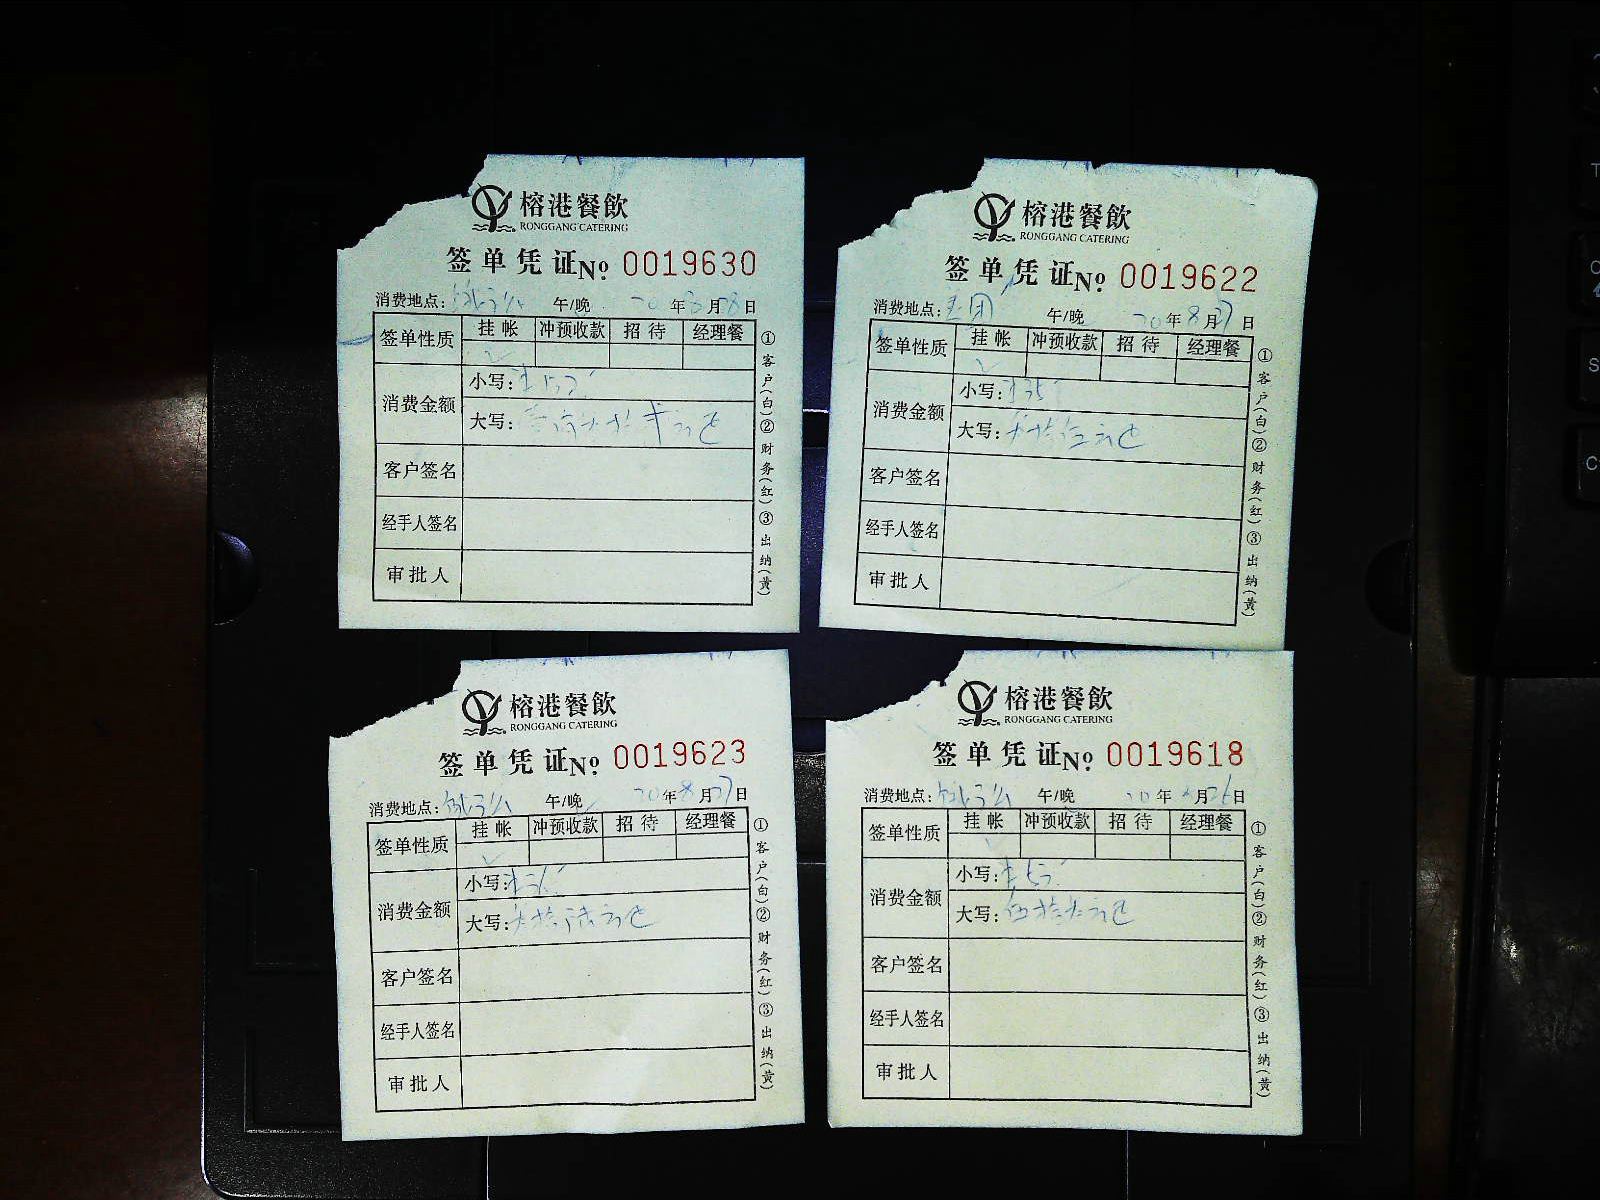 榕港餐飲
RONGGANG CATERING
签单凭证No. 0019630
消费地点： 午/晚 20年8月28日
签单性质 挂帐 冲预收款 招待 经理餐
消费金额
小写：
大写：
客户签名
经手人签名
审批人
①客户(白)②财务(红)③出纳(黄)
榕港餐飲
RONGGANG CATERING
签单凭证No. 0019622
消费地点： 午/晚 20年8月27日
签单性质 挂帐 冲预收款 招待 经理餐
消费金额
小写：
大写：
客户签名
经手人签名
审批人
①客户(白)②财务(红)③出纳(黄)
榕港餐飲
RONGGANG CATERING
签单凭证No. 0019623
消费地点： 午/晚 20年8月27日
签单性质 挂帐 冲预收款 招待 经理餐
消费金额
小写：
大写：
客户签名
经手人签名
审批人
①客户(白)②财务(红)③出纳(黄)
榕港餐飲
RONGGANG CATERING
签单凭证No. 0019618
消费地点： 午/晚 20年 月26日
签单性质 挂帐 冲预收款 招待 经理餐
消费金额
小写：
大写：
客户签名
经手人签名
审批人
①客户(白)②财务(红)③出纳(黄)